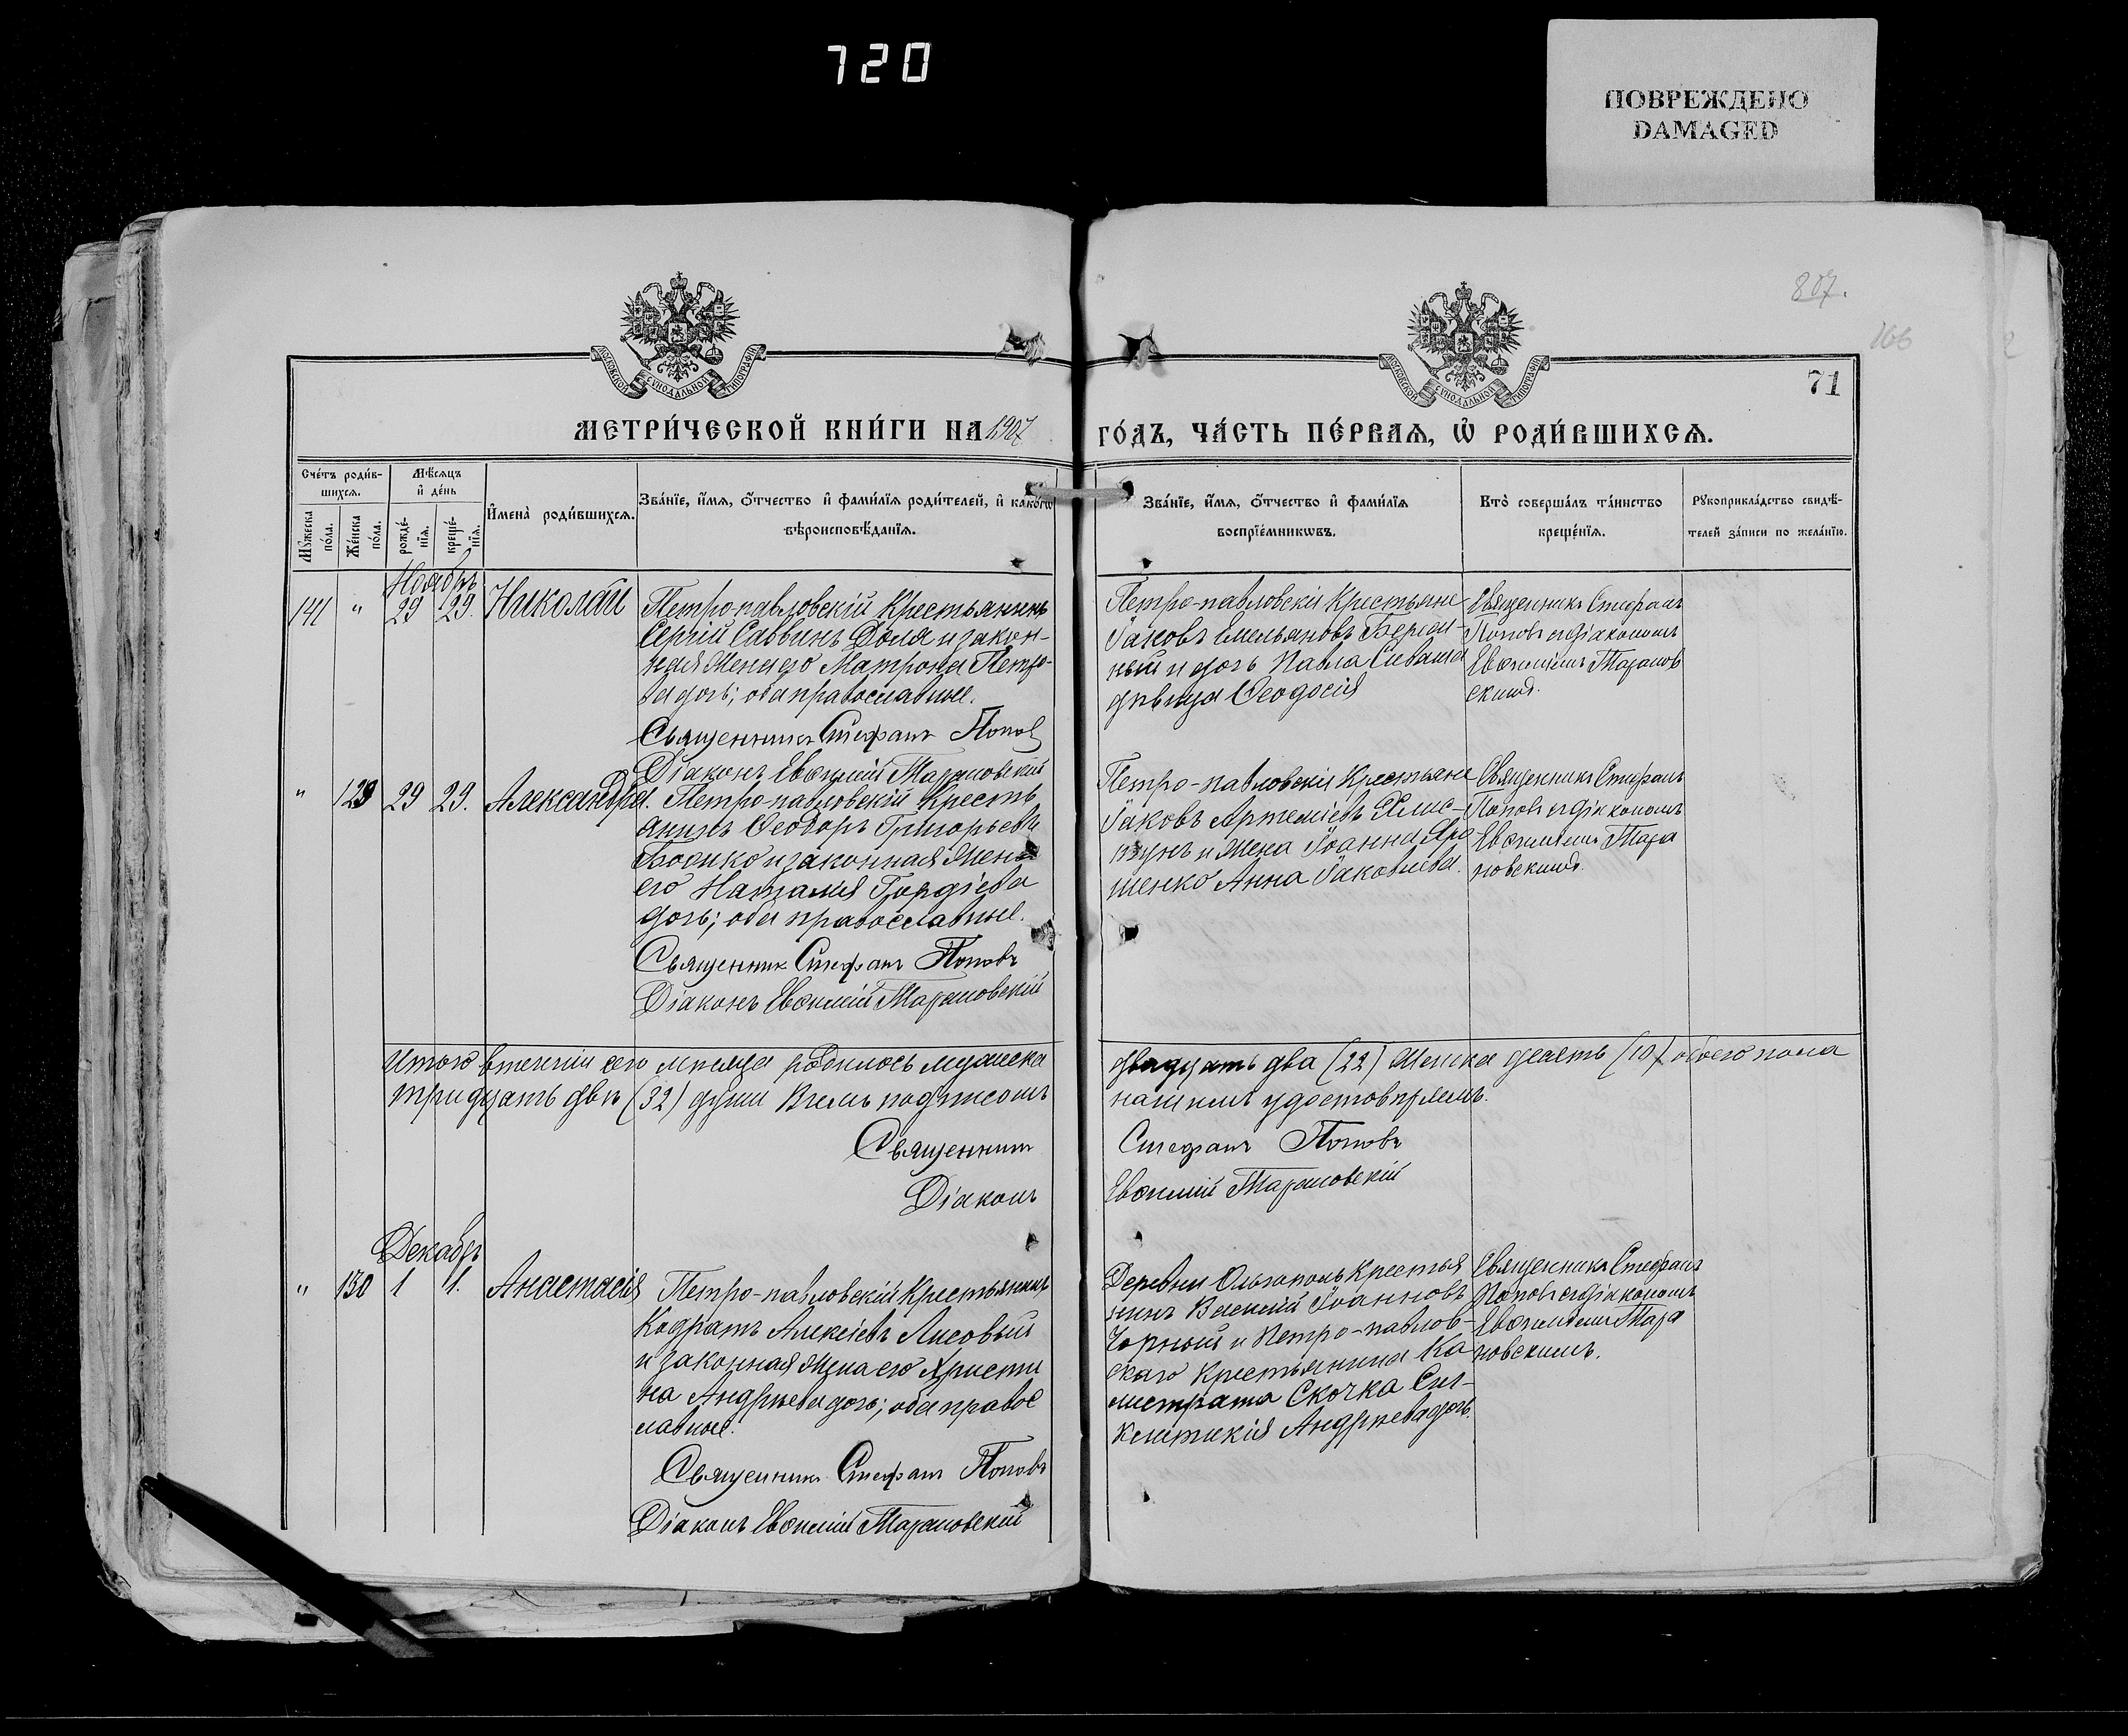 720
ПОВРЕЖДЕНО
DAMAGED
807.
166
71
МОСКОВСКОЙ СѴНОДАЛЬНОЙ ТИПОГРАФІИ
МОСКОВСКОЙ СѴНОДАЛЬНОЙ ТИПОГРАФІИ
МЕТРИ́ЧЕСКОЙ КНИ́ГИ НА 1907
ГО́ДЪ, ЧА́СТЬ ПЕ́РВАѦ, Ѽ РОДИ́ВШИХСѦ.
Сче́тъ роди́в-
шихсѧ.
Мѣ́сѧцъ
и҆ де́нь
Мꙋ́жеска по́ла.
Же́нска по́ла.
рожде́-
нїѧ.
креще́-
нїѧ.
И҆мена̀ роди́вшихсѧ.
Зва́нїе, и҆́мѧ, ѻ҆́тчество и҆ фами́лїѧ роди́телей, и҆ како́гѡ
вѣроисповѣ́данїѧ.
Зва́нїе, и҆́мѧ, ѻ҆́тчество и҆ фами́лїѧ
воспрїе́мникѡвъ.
Кто̀ соверша́лъ та́инство
креще́нїѧ.
Рꙋкоприкла́дство свидѣ́-
телей за́писи по жела́нїю.
Ноябрь
141 " 29 29. Николай
Петро-павловскій Крестьянинъ
Сергій Саввинъ Доля и закон-
ная жена его Матрона Петро-
ва дочь; оба православные.
Священникъ Стефанъ Попов
Діаконъ Евѳимій Тарановскій
Петро-павловскіе Крестьяне
Іаковъ Емельяновъ
ный и дочь Павла Сиваша
дѣвица Ѳеодосія
Священникъ Стефанъ
Поповъ съ діакономъ
Евѳиміемъ Таранов
скимъ.
" 129 29 29. Александра.
Петро-павловскій Кресть
янинъ Ѳеодоръ Григорьевъ
Бойко и законная жена
его Наталія Гордіева
дочь; оба православные.
Священник Стефанъ Поповъ
Діаконъ Евѳимій Тарановскій
Петро-павловскіе Крестьяне
Іаковъ Артеміевъ
и жена Іоанна Яро
шенко Анна Іаковлева.
Священникъ Стефанъ
Поповъ съ діакономъ
Евѳиміемъ Тара
новскимъ.
Итого втеченіи сего мѣсяца родилось мужеска
двадцать два (22) женска десять (10) обоего пола
тридцать двѣ (32) души Въ чемъ подписомъ
нашимъ удостовѣряемъ.
Священникъ
Стефанъ Поповъ
Діаконъ
Евѳимій Тарановскій
Декабрь
" 130 1 1. Анастасія
Петро-павловскій Крестьянинъ
Кодратъ Алексіевъ Лисовый
и законная жена его Христи
на Андреева дочь; оба правос
лавные.
Священникъ Стефанъ Поповъ
Діаконъ Евѳимій Тарановскій
Деревни Ольгополь Крестья
нинъ Василій Іоанновъ
Чорный и Петро-павлов-
скаго Крестьянина Ка
листрата Скочка Син-
клитикія Андреева дочь.
Священникъ Стефанъ
Поповъ съ діакономъ
Евѳиміемъ Тара
новскимъ.